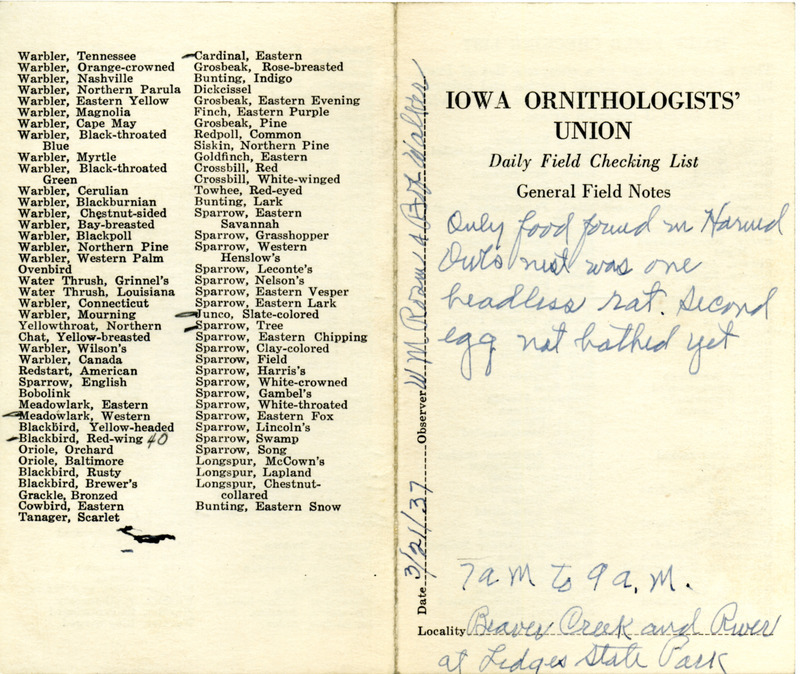 Warbler, Tennessee
Warbler, Orange-crowned
Warbler, Nashville
Warbler, Northern Parula
Warbler, Eastern Yellow
Warbler, Magnolia
Warbler, Cape May
Warbler, Black-throated
Blue
Warbler, Myrtle
Warbler, Black-throated
Green
Warbler, Cerulian
Warbler, Blackburnian
Warbler, Chestnut-sided
Warbler, Bay-breasted
Warbler, Blackpoll
Warbler, Northern Pine
Warbler, Western Palm
Ovenbird
Water Thrush, Grinnel's
Water Thrush, Louisiana
Warbler, Connecticut
Warbler, Mourning
Yellowthroat, Northern
Chat, Yellow-breasted
Warbler, Wilson's
Warbler, Canada
Redstart, American
Sparrow, English
Bobolink
Meadowlark, Eastern
Meadowlark, Western
Blackbird, Yellow-headed
Blackbird, Red-wing 40
Oriole, Orchard
Oriole, Baltimore
Blackbird, Rusty
Blackbird, Brewer's
Grackle, Bronzed
Cowbird, Eastern
Tanager, Scarlet
Cardinal, Eastern
Grosbeak, Rose-breasted
Bunting, Indigo
Dickcissel
Grosbeak, Eastern Evening
Finch, Eastern Purple
Grosbeak, Pine
Redpoll, Common
Siskin, Northern Pine
Goldfinch, Eastern
Crossbill, Red
Crossbill, White-winged
Towhee, Red-eyed
Bunting, Lark
Sparrow, Eastern
Savannah
Sparrow, Grasshopper
Sparrow, Western
Henslow's
Sparrow, Leconte's
Sparrow, Nelson's
Sparrow, Eastern Vesper
Sparrow, Eastern Lark
Junco, Slate-colored
Sparrow, Tree
Sparrow, Eastern Chipping
Sparrow, Clay-colored
Sparrow, Field
Sparrow, Harris's
Sparrow, White-crowned
Sparrow, Gambel's
Sparrow, White-throated
Sparrow, Eastern Fox
Sparrow, Lincoln's
Sparrow, Swamp
Sparrow, Song
Longspur, McCown's
Longspur, Lapland
Longspur, Chestnut-
collared
Bunting, Eastern Snow
Date 3/21/37 Observer W M Rosen & Walter
IOWA ORNITHOLOGISTS'
UNION
Daily Field Checking List
General Field Notes
Only food found in Horned
Owls nest was one
headless rat. Second
egg not hathed yet
7 a M to 9 a. M.
Locality Beaver Creek and River
at Ledges State Park